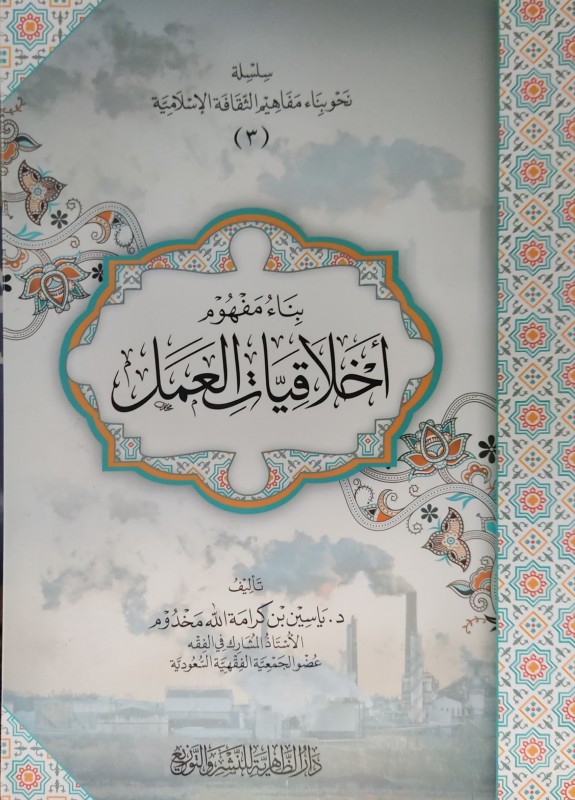 سِلْسِلة
نَحْو بِنَاء مَفَاهِيْم الثَّقَافَة الإِسْلَامِيَّة
(٣)
بِنَاءُ مَفْهُوْم
أَخْلَاقِيَّاتِ العَمَل
تَأْلِيْفُ
د. يَاسِيْن بْن كَرَامَة اللّٰه مَخْدُوْم
الأُسْتَاذُ المُشَارِكُ فِي الفِقْه
عُضْو الجَمْعِيَّة الفِقْهِيَّة السُّعُودِيَّة
دَارُ الظَّاهِرِيَّة لِلنَّشْرِ وَالتَّوْزِيْع